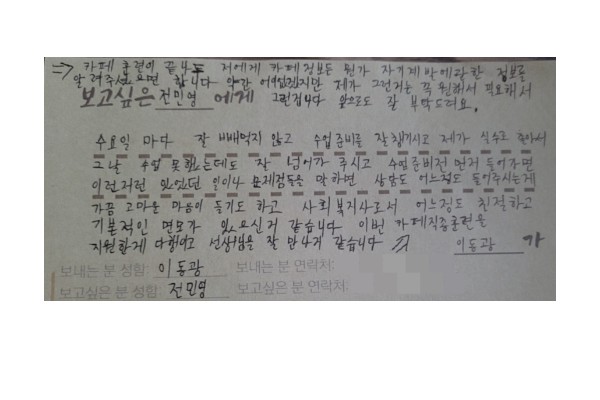 ⇒ 카페 훈련이 끝나도 저에게 카페정보든 뭔가 자기계발에관한 정보를
알려주셨으면 합니다 약간 어렵겠지만 제가 그런거는 꼭 원해서 필요해서
보고싶은 전민영 에게 그런겁니다 앞으로도 잘 부탁드려요.
수요일 마다 잘 빼먹지 않고 수업준비를 잘챙기시고 제가 실수로 졸아서
그날 수업 못했는데도 잘 넘어가 주시고 수업준비전 먼저 들어주면
이런저런 있었던 일이나 문제점들을 말하면 상담도 어느정도 들어주시는게
가끔 고마운 마음이 들기도 하고 사회복지사로서 어느정도 친절하고
기본적인 면모가 있으신거 같습니다 이번 카페직종훈련을
지원한게 다행이고 선생님을 잘 만난거 같습니다
이동광 가
보내는 분 성함: 이동광 보내는 분 연락처:
보고싶은 분 성함: 전민영 보고싶은 분 연락처: